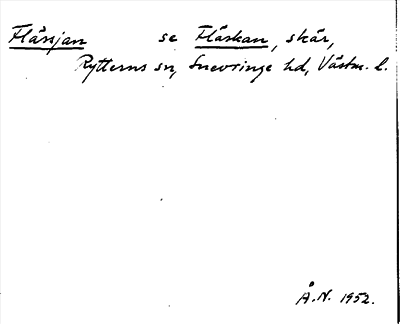 Flässjan se Fläskan, skär,
Rytterns sn, Snevringe hd, Västm. l.
Å.N. 1952.